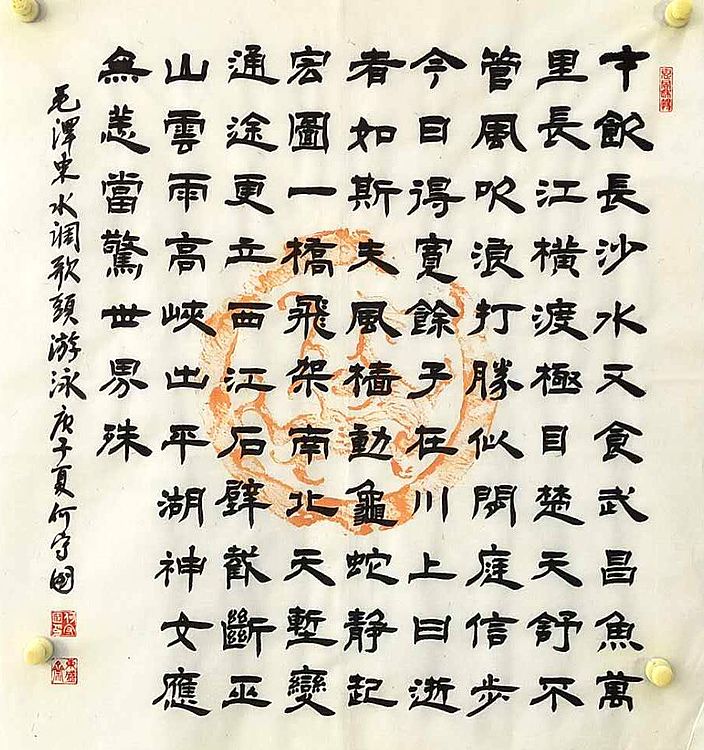 才飲長沙水又食武昌魚萬
里長江橫渡極目楚天舒不
管風吹浪打勝似閑庭信步
今日得寬餘子在川上曰逝
者如斯夫風檣動龜蛇靜起
宏圖一橋飛架南北天塹變
通途更立西江石壁截斷巫
山雲雨高峽出平湖神女應
無恙當驚世界殊
毛澤東水调歌頭游泳庚子夏何守國